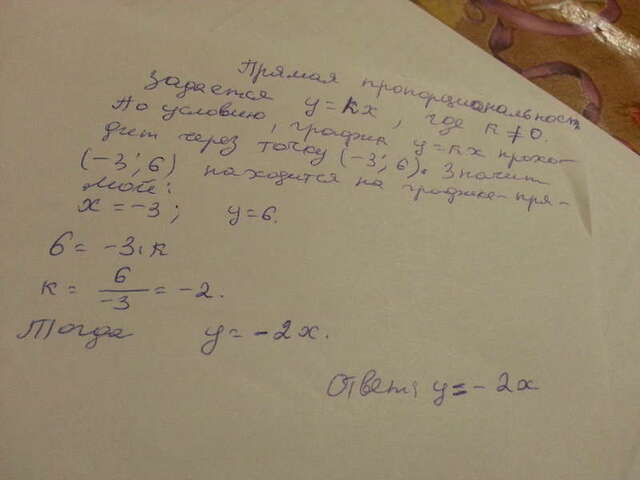 Прямая пропорциональност
задается y=kx, где k≠0.
По условию, график y=kx прохо-
дит через точку (-3; 6). Значит
(-3; 6) находится на графике-пря-
мой:
x=-3; y=6.
6= -3·k
k= 6/-3 = -2.
Тогда y= -2x.
Ответ: y=-2x